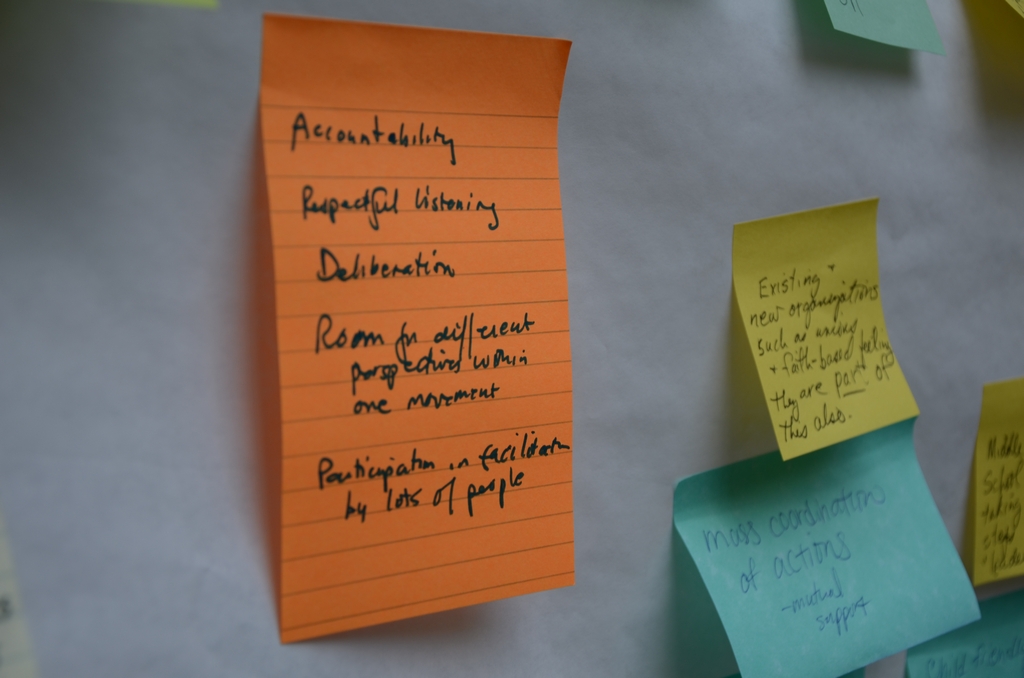 Accountability
Respectful listening
Deliberation
Room for different
perspectives within
one movement
Participation in facilitation
by lots of people
Existing +
new organizations
such as unions
+ faith-based feeling
they are part of
this also.
mass coordination
of actions
-mutual
support
Middle
School
taking